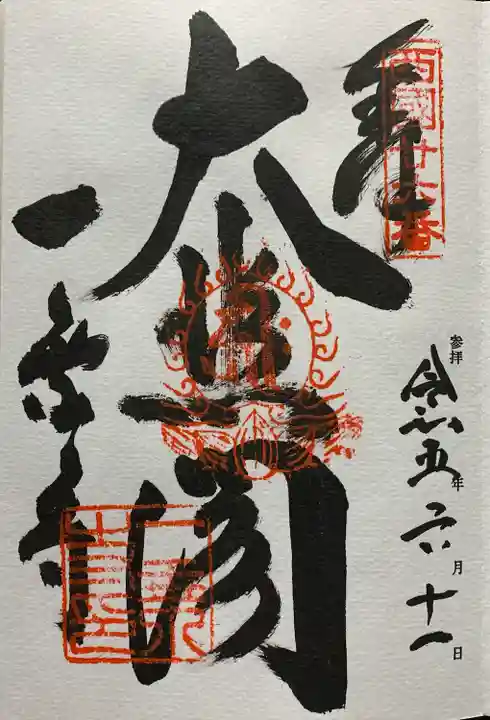 奉拝
西國廿六番
参拝 令和五年六月十一日
大悲閣
一乗寺